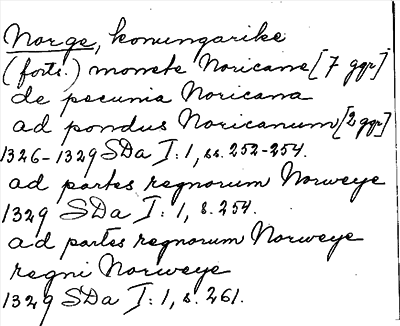 Norge, konungarike
(forts.) monete Noricane [7 ggr]
de pecunia Noricana
ad pondus Noricanum [2 ggr]
1326-1329 SDa I:1, ss. 252-254.
ad partes regnorum Norweye
1329 SDa I:1, s. 254.
ad partes regnorum Norweye
regni Norweye
1329 SDa I:1, s. 261.